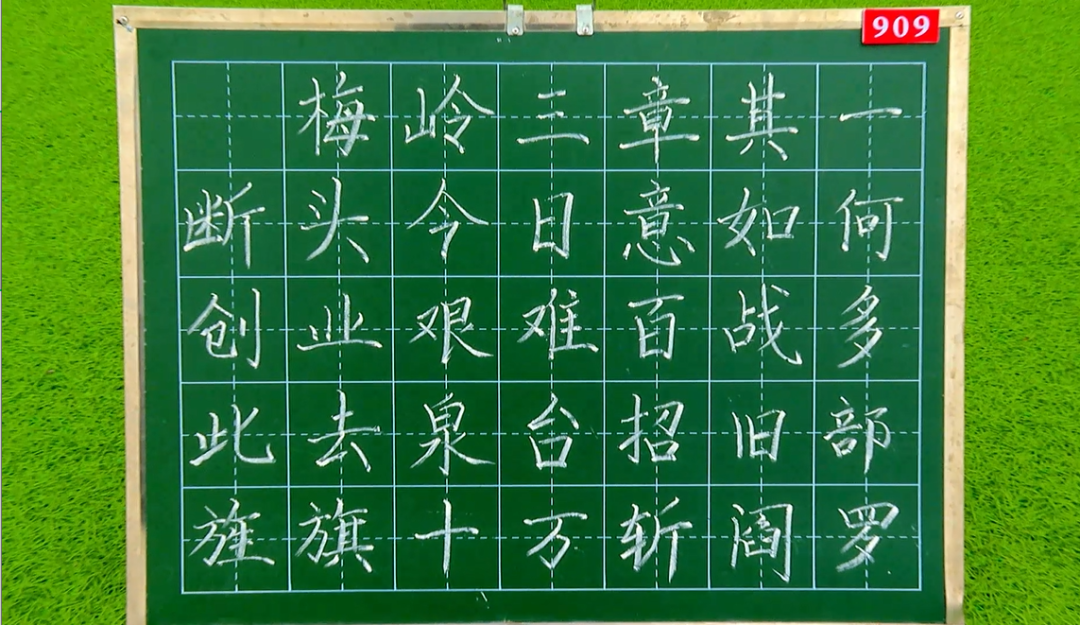 909
梅岭三章其一
断头今日意如何
创业艰难百战多
此去泉台招旧部
旌旗十万斩阎罗